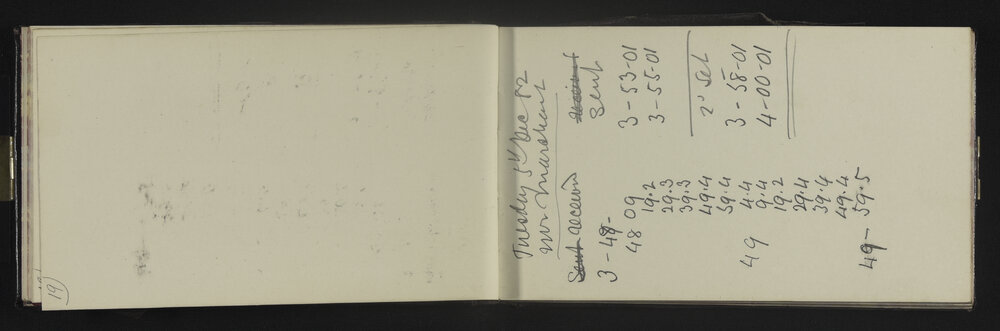 19
Tuesday 5th Dec 82
Mr Marshant
Sent received
3 - 48 -
48 09
19.2
29.3
39.3
49.4
59.4
49 4.4
9.4
19.2
29.4
39.4
49.4
49 - 59.5
Sent
3 - 53 - 01
3 - 55 - 01
2d Set
3 - 58 - 01
4 - 00 - 01